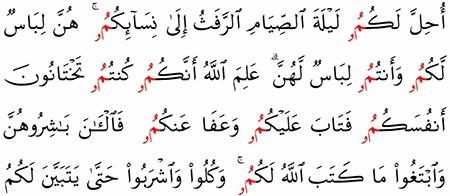 أُحِلَّ لَكُمُۥ لَيْلَةَ ٱلصِّيَامِ ٱلرَّفَثُ إِلَىٰ نِسَآئِكُمُۥ ۚ هُنَّ لِبَاسٌ
لَّكُمُۥ وَأَنتُمُۥ لِبَاسٌ لَّهُنَّ ۗ عَلِمَ ٱللَّهُ أَنَّكُمُۥ كُنتُمُۥ تَخْتَانُونَ
أَنفُسَكُمُۥ فَتَابَ عَلَيْكُمُۥ وَعَفَا عَنكُمُۥ فَٱلْـَٰٔنَ بَـٰشِرُوهُنَّ
وَٱبْتَغُوا۟ مَا كَتَبَ ٱللَّهُ لَكُمُۥ ۚ وَكُلُوا۟ وَٱشْرَبُوا۟ حَتَّىٰ يَتَبَيَّنَ لَكُمُ